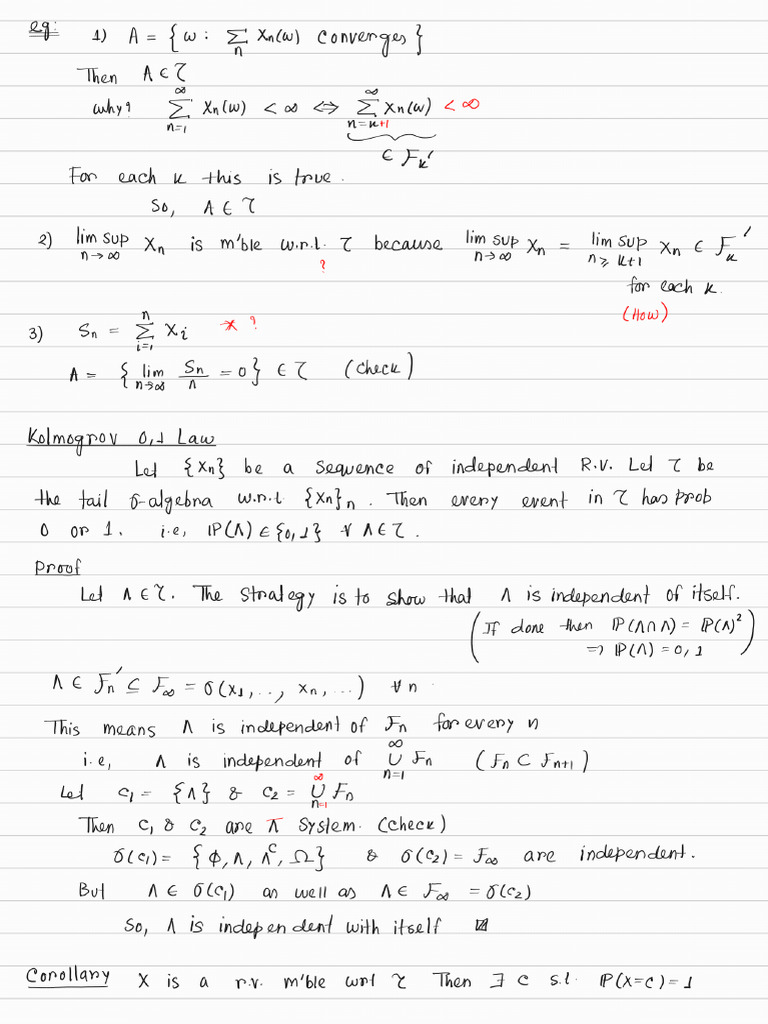 eg: 1) A = { ω : Σ_n Xn(ω) Converges }
Then A ∈ τ
why? Σ_{n=1}^∞ Xn(ω) < ∞ ⇔ Σ_{n=k+1}^∞ Xn(ω) < ∞
∈ Fk'
For each k this is true.
So, A ∈ τ
2) lim sup_{n→∞} Xn is m'ble w.r.t. τ because lim sup_{n→∞} Xn = lim sup_{n≥k+1} Xn ∈ F_k'
?
for each k.
(How)
3) Sn = Σ_{i=1}^n Xi ?
Λ = { lim_{n→∞} Sn/n = 0 } ∈ τ (Check)
Kolmogrov 0,1 Law
Let {Xn} be a sequence of independent R.V. Let τ be
the tail σ-algebra w.r.t {Xn}_n. Then every event in τ has prob
0 or 1. i.e, IP(Λ) ∈ {0,1} ∀ Λ ∈ τ.
Proof
Let Λ ∈ τ. The strategy is to show that Λ is independent of itself.
(If done then IP(Λ∩Λ) = IP(Λ)²
⇒ IP(Λ) = 0, 1)
Λ ∈ Fn' ⊆ F∞ = σ(X1,.., Xn,...) ∀ n
This means Λ is independent of Fn for every n
i.e, Λ is independent of ∪_{n=1}^∞ Fn (Fn ⊂ Fn+1)
Let C1 = {Λ} & C2 = ∪_{n=1}^∞ Fn
Then C1 & C2 are π system. (Check)
σ(C1) = {ϕ, Λ, Λ^c, Ω} & σ(C2) = F∞ are independent.
But Λ ∈ σ(C1) as well as Λ ∈ F∞ = σ(C2)
So, Λ is independent with itself
Corollary X is a r.v. m'ble wrt τ Then ∃ c s.t. IP(X=c)=1